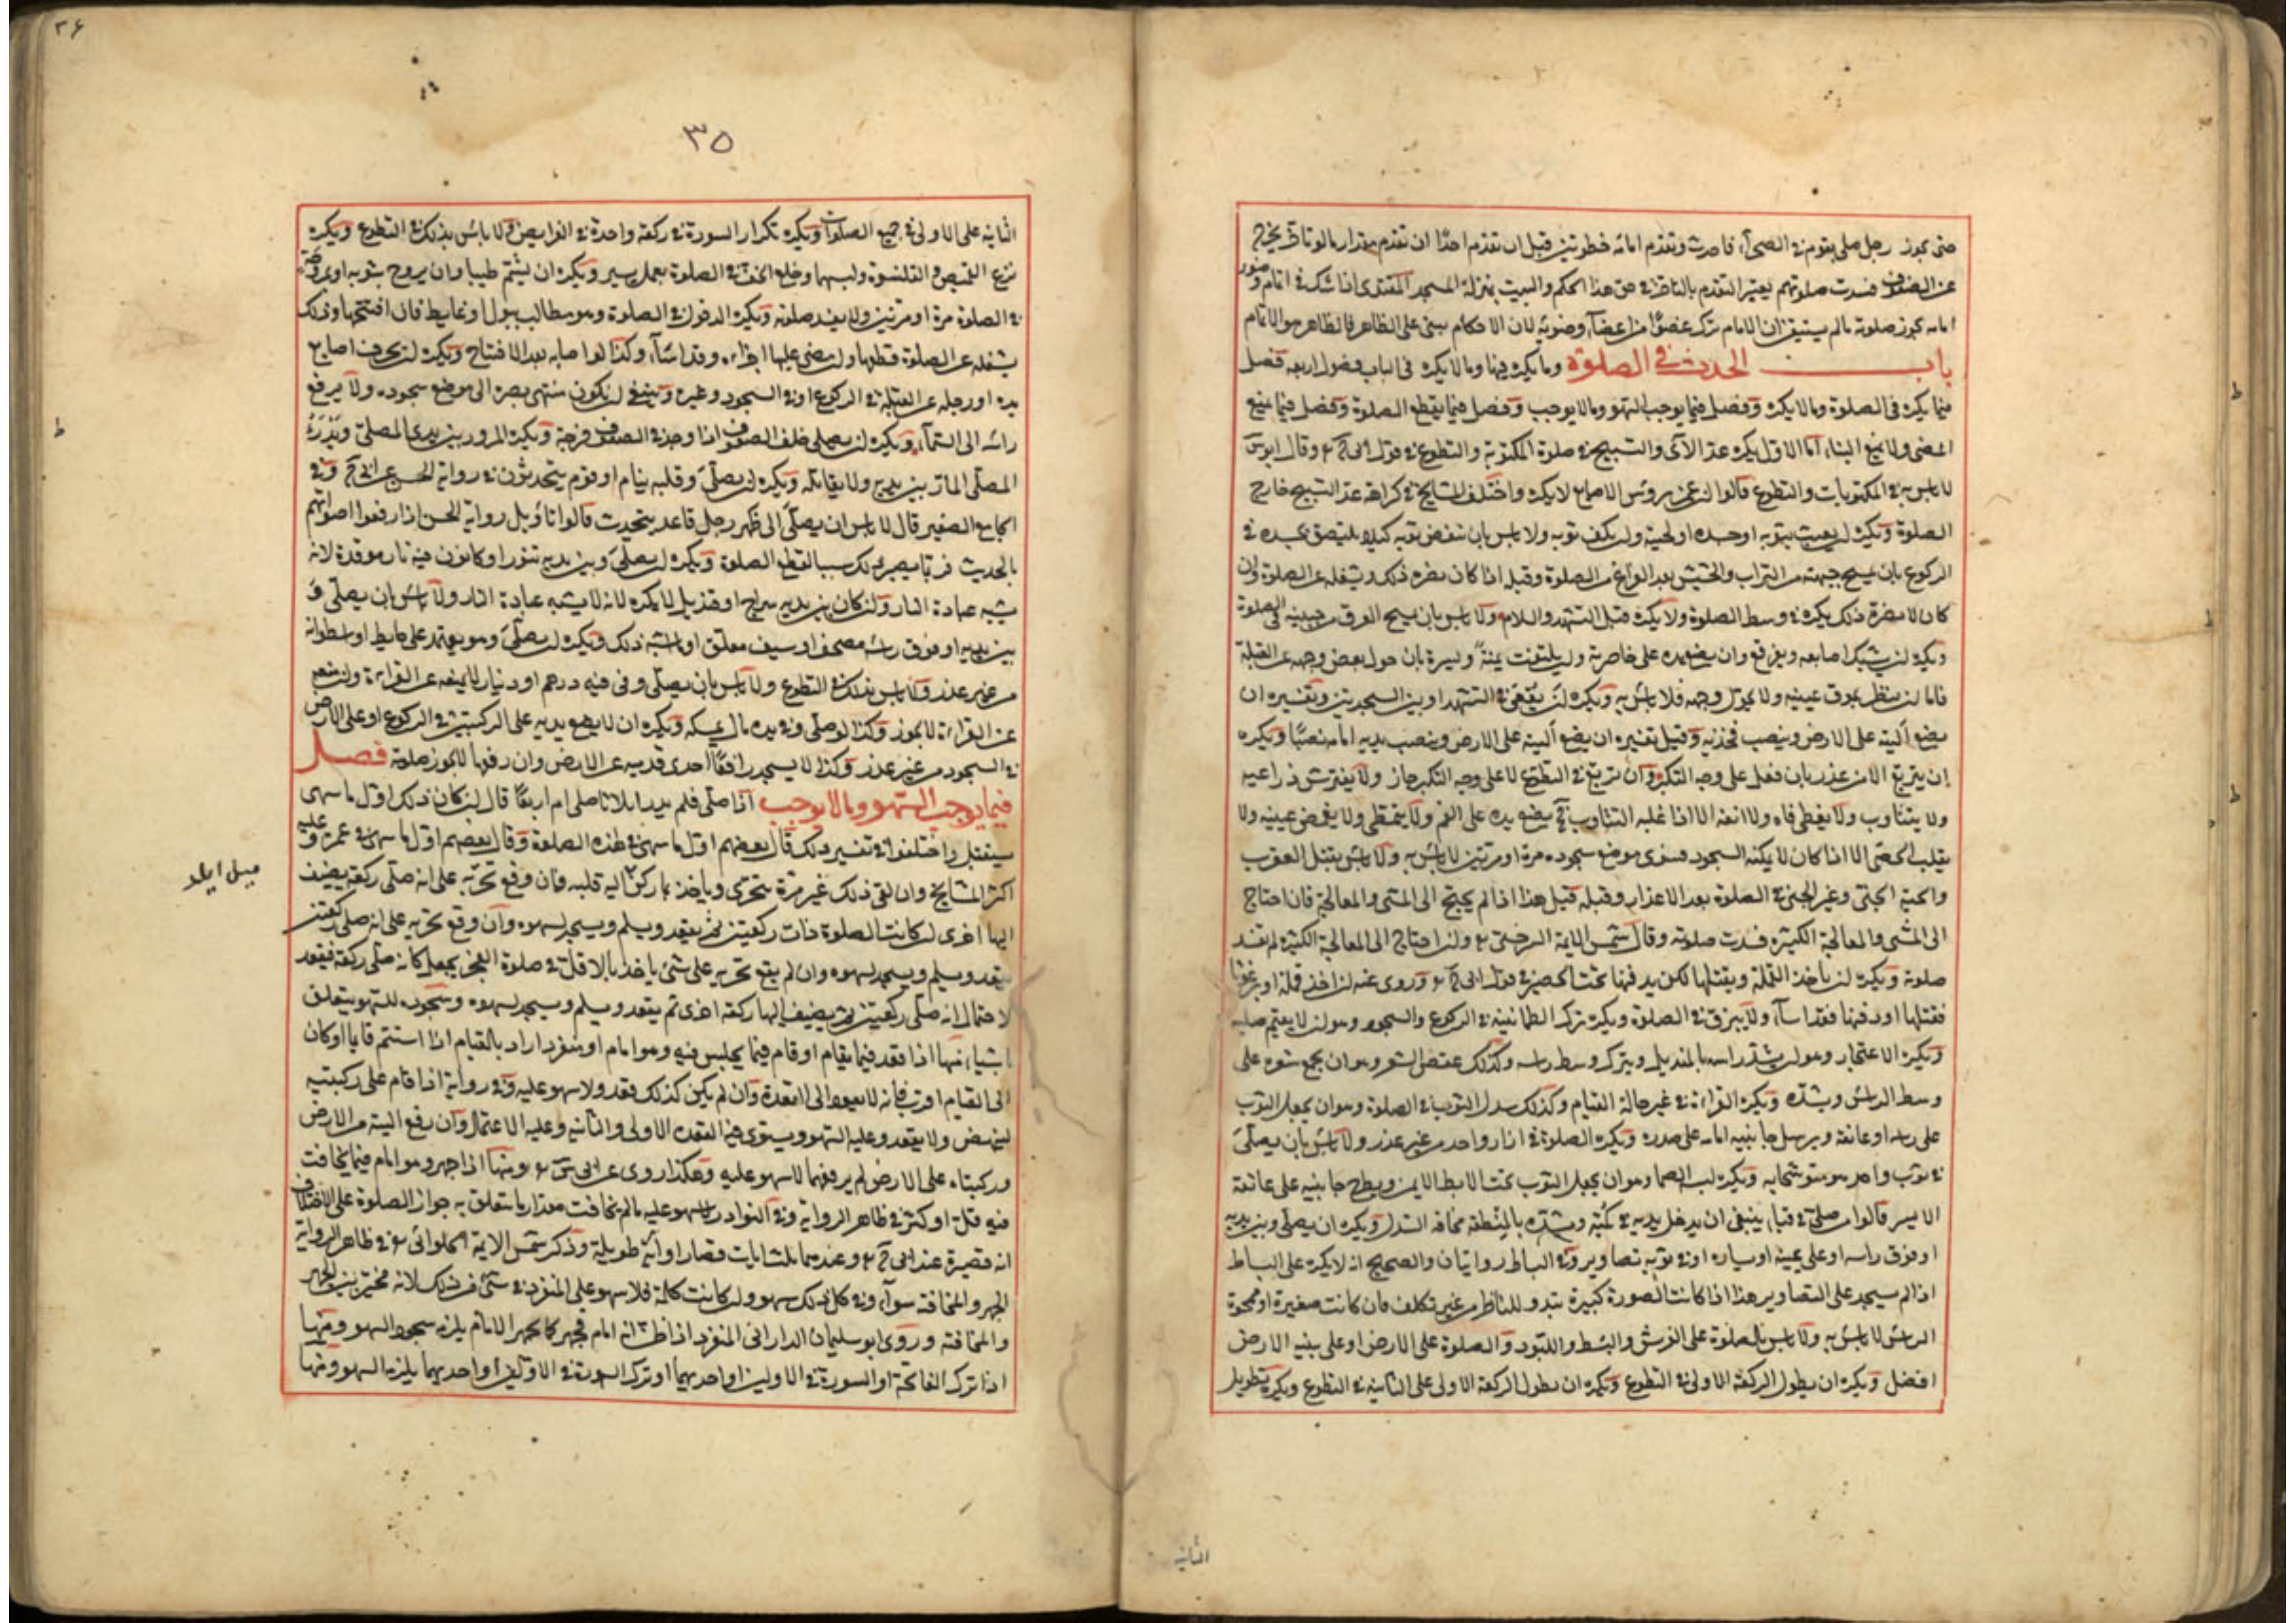 حتى يجوز رجل صلى بقوم في الصحراء فاحدث وتقدم امامه خطوتين قبل ان تقدم احدا ان تقدم مقدار ما لو تاخر يخرج
عن الصفوف فسدت صلوتهم يعتبر التقدم بالتاخر في حق هذا الحكم والبيت بمنزلة المسجد المقتدى اذا شك في اتمام وضوء
امامه يجوز صلوته مالم يستيقن ان الامام ترك عضوا من اعضاء وضوئه لان الاحكام يبنى على الظاهر فالظاهر هو الاتمام
باب الحدث في الصلوة وما يكره فيها وما لا يكره في الباب فصول اربعة فصل
فيما يكره في الصلوة وما لا يكره وفصل فيما يوجب السهو وما لا يوجب وفصل فيما يقطع الصلوة وفصل فيما يمنع
المضى ولا يمنع البناء اما الاول يكره عد الآى والتسبيح في صلوة المكتوبة والتطوع في قول ابى ح وقال ابو س
لا باس به في المكتوبات والتطوع قالوا ان غمز برؤس الاصابع لا يكره واختلف المشايخ في كراهة عد التسبيح خارج
الصلوة ويكره ان يعبث بثوبه او جسده او لحيته وان يكف ثوبه ولا باس بان ينفض ثوبه كيلا يلتصق بجسده في
الركوع بان يمسح جبهته من التراب والحشيش بعد الفراغ من الصلوة وقبله اذا كان يضره ذلك ويشغله عن الصلوة وان
كان لا يضره ذلك يكره في وسط الصلوة ولا يكره قبل التشهد والسلام ولا باس بان يمسح العرق من جبينه في الصلوة
ويكره ان يشبك اصابعه ويفرقع وان يضع يده على خاصرته وان يلتفت يمنة ويسرة بان حول بعض وجهه عن القبلة
فاما ان ينظر بموق عينيه ولا يحول وجهه فلا باس به ويكره ان يقعى في التشهد او بين السجدتين وتفسيره ان
يضع اليته على الارض وينصب فخذيه وقيل تفسيره ان يضع اليته على الارض وينصب يديه امامه نصبا ويكره
ان يتربع الا من عذر بان فعل على وجه التكبر وان تربع في التطوع لا على وجه التكبر جاز ولا يفترش ذراعيه
ولا يتثاوب ولا يغطى فاه ولا انفه الا اذا غلبه التثاوب فح يضع يده على الفم ولا يتمطى ولا يغمض عينيه ولا
يقلب الحصى الا اذا كان لا يمكنه السجود فسوى موضع سجوده مرة او مرتين لا باس به ولا باس بقتل العقرب
والحية الجنى وغير الجنى في الصلوة بعد الاعذار وقبله قيل هذا اذا لم يحتج الى المشى والمعالجة فان احتاج
الى المشى والمعالجة الكثيرة فسدت صلوته وقال شمس الايمة السرخسى وان احتاج الى المعالجة الكثيرة لم تفسد
صلوته ويكره ان ياخذ القملة ويقتلها لكن يدفنها تحت الحصير في قول ابى ح وروى عنه ان اخذ قملة او برغوثا
فقتلها او دفنها فقد اساء ولا يبزق في الصلوة ويكره ترك الطمانينة في الركوع والسجود وهو ان لا يقيم صلبه
ويكره الاعتجار وهو ان يشد راسه بالمنديل ويترك وسط راسه وكذلك عقص الشعر وهو ان يجمع شعره على
وسط الراس ويشده ويكره القراءة في غير حالة القيام وكذلك سدل الثوب في الصلوة وهو ان يجعل الثوب
على راسه او عاتقه ويرسل جانبيه امامه على صدره ويكره الصلوة في ازار واحد من غير عذر ولا باس بان يصلى
في ثوب واحد متوشحا به ويكره لبس الصماء وهو ان يجعل الثوب تحت الابط الايمن ويطرح جانبيه على عاتقه
الايسر قالوا من صلى في قباء ينبغى ان يدخل يديه في كميه ويشده بالمنطقة مخافة السدل ويكره ان يصلى وبين يديه
او فوق راسه او على يمينه او يساره او في ثوبه تصاوير وفي البساط روايتان والصحيح انه لا يكره على البساط
اذا لم يسجد على التصاوير هذا اذا كانت الصورة كبيرة تبدو للناظر من غير تكلف فان كانت صغيرة او ممحوة
الراس لا باس به ولا باس بالصلوة على الفرش والبسط واللبود والصلوة على الارض او على ما ينبته الارض
افضل ويكره ان يطول الركعة الاولى في التطوع ويكره ان يطول الركعة الاولى على الثانية في التطوع ويكره تطويل
الثانية
٣٦
٣٥
الثانية على الاولى في جميع الصلوات ويكره تكرار السورة في ركعة واحدة في الفرايض ولا باس بذلك في التطوع ويكره
نزع القميص والقلنسوة ولبسهما وخلع الخف في الصلوة بعمل يسير ويكره ان يشتم طيبا وان يروح بثوبه او بمروحة
في الصلوة مرة او مرتين ولا يفسد صلوته ويكره الدخول في الصلوة وهو مطالب ببول او غايط فان افتتحها وذلك
يشغله عن الصلوة قطعها وان مضى عليها اجزاه وقد اساء وكذا لو اصابه بعد الافتتاح ويكره ان يحرف اصابع
يده او رجله عن القبلة في الركوع او في السجود وغيره وينبغى ان يكون منتهى بصره الى موضع سجوده ولا يرفع
راسه الى السماء ويكره ان يصلى خلف الصفوف اذا وجد في الصفوف فرجة ويكره المرور بين يدى المصلى ويدرء
المصلى المار بين يديه ولا يقاتله ويكره ان يصلى وقبله نيام او قوم يتحدثون في رواية الحسن عن ابى ح وفي
الجامع الصغير قال لا باس ان يصلى الى ظهر رجل قاعد يتحدث قالوا تاويل رواية الحسن اذا رفعوا اصواتهم
بالحديث فربما يصير ذلك سببا لقطع الصلوة ويكره ان يصلى وبين يديه تنور او كانون فيه نار موقدة لانه
يشبه عبادة النار وان كان بين يديه سراج او قنديل لا يكره لانه لا يشبه عبادة النار ولا باس بان يصلى و
بين يديه او فوق راسه مصحف او سيف معلق او ما اشبه ذلك ويكره ان يصلى وهو يعتمد على حايط او اسطوانة
من غير عذر ولا باس بذلك في التطوع ولا باس بان يصلى وفي فيه درهم او دينار لا يمنعه عن القراءة وان منعه
عن القراءة لا يجوز وكذا لو صلى وفي يده مال يمسكه ويكره ان لا يضع يديه على الركبتين في الركوع او على الارض
في السجود من غير عذر وكذا لا يسجد رافعا احدى قدميه عن الارض وان رفعها لا يجوز صلوته فصل
فيما يوجب السهو وما لا يوجب اذا صلى فلم يدر اثلاثا صلى ام اربعا قال ان كان ذلك اول ما سهى
سيقتبل واختلفوا في تفسير ذلك قال بعضهم اول ما سهى في هذه الصلوة وقال بعضهم اول ما سهى في عمره وعليه
اكثر المشايخ وان لقى ذلك غير مرة يتحرى وياخذ بما ركن اليه قلبه فان وقع تحريه على انه صلى ركعة يضيف
اليها اخرى ان كانت الصلوة ذات ركعتين ثم يقعد ويسلم ويسجد لسهوه وان وقع تحريه على انه صلى ركعتين
يقعد ويسلم ويسجد لسهوه وان لم يقع تحريه على شئ ياخذ بالاقل في صلوة الفجر يجعل كانه صلى ركعة فيقعد
لاحتمال انه صلى ركعتين ثم يضيف اليها ركعة اخرى ثم يقعد ويسلم ويسجد لسهوه وسجود السهو يتعلق
باشياء منها اذا قعد فيما يقام او قام فيما يجلس فيه وهو امام او منفرد اراد بالقيام اذا استتم قايما او كان
الى القيام اقرب فانه لا يعود الى القعدة وان لم يكن كذلك قعد ولا سهو عليه وفي رواية اذا قام على ركبتيه
لينهض ولا يقعد وعليه السهو ويستوى فيه القعدة الاولى والثانية وعليه الاعتماد وان رفع اليته من الارض
وركبتاه على الارض لم يرفعهما لا سهو عليه وهكذا روى عن ابى س ومنها اذا جهر وهو امام فيما يخافت
فيه قل او كثر في ظاهر الرواية وفي النوادر لا سهو عليه مالم يخافت مقدار ما يتعلق به جواز الصلوة على الاختلاف
انه قصيرة عند ابى ح وعندهما بثلث ايات قصار او اية طويلة وذكر شمس الايمة الحلوائى في ظاهر الرواية
الجهر والمخافتة سواء وفي كل ذلك سهو وان كانت كلمة فلا سهو على المنفرد في شئ من ذلك لانه مخير بين الجهر
والمخافتة وروى ابو سليمان الدارانى المنفرد اذا ظن انه امام فجهر كما يجهر الامام يلزمه سجود السهو ومنها
اذا ترك الفاتحة او السورة في الاوليين او احديهما او ترك السورة في الاوليين او احديهما يلزمه السهو ومنها